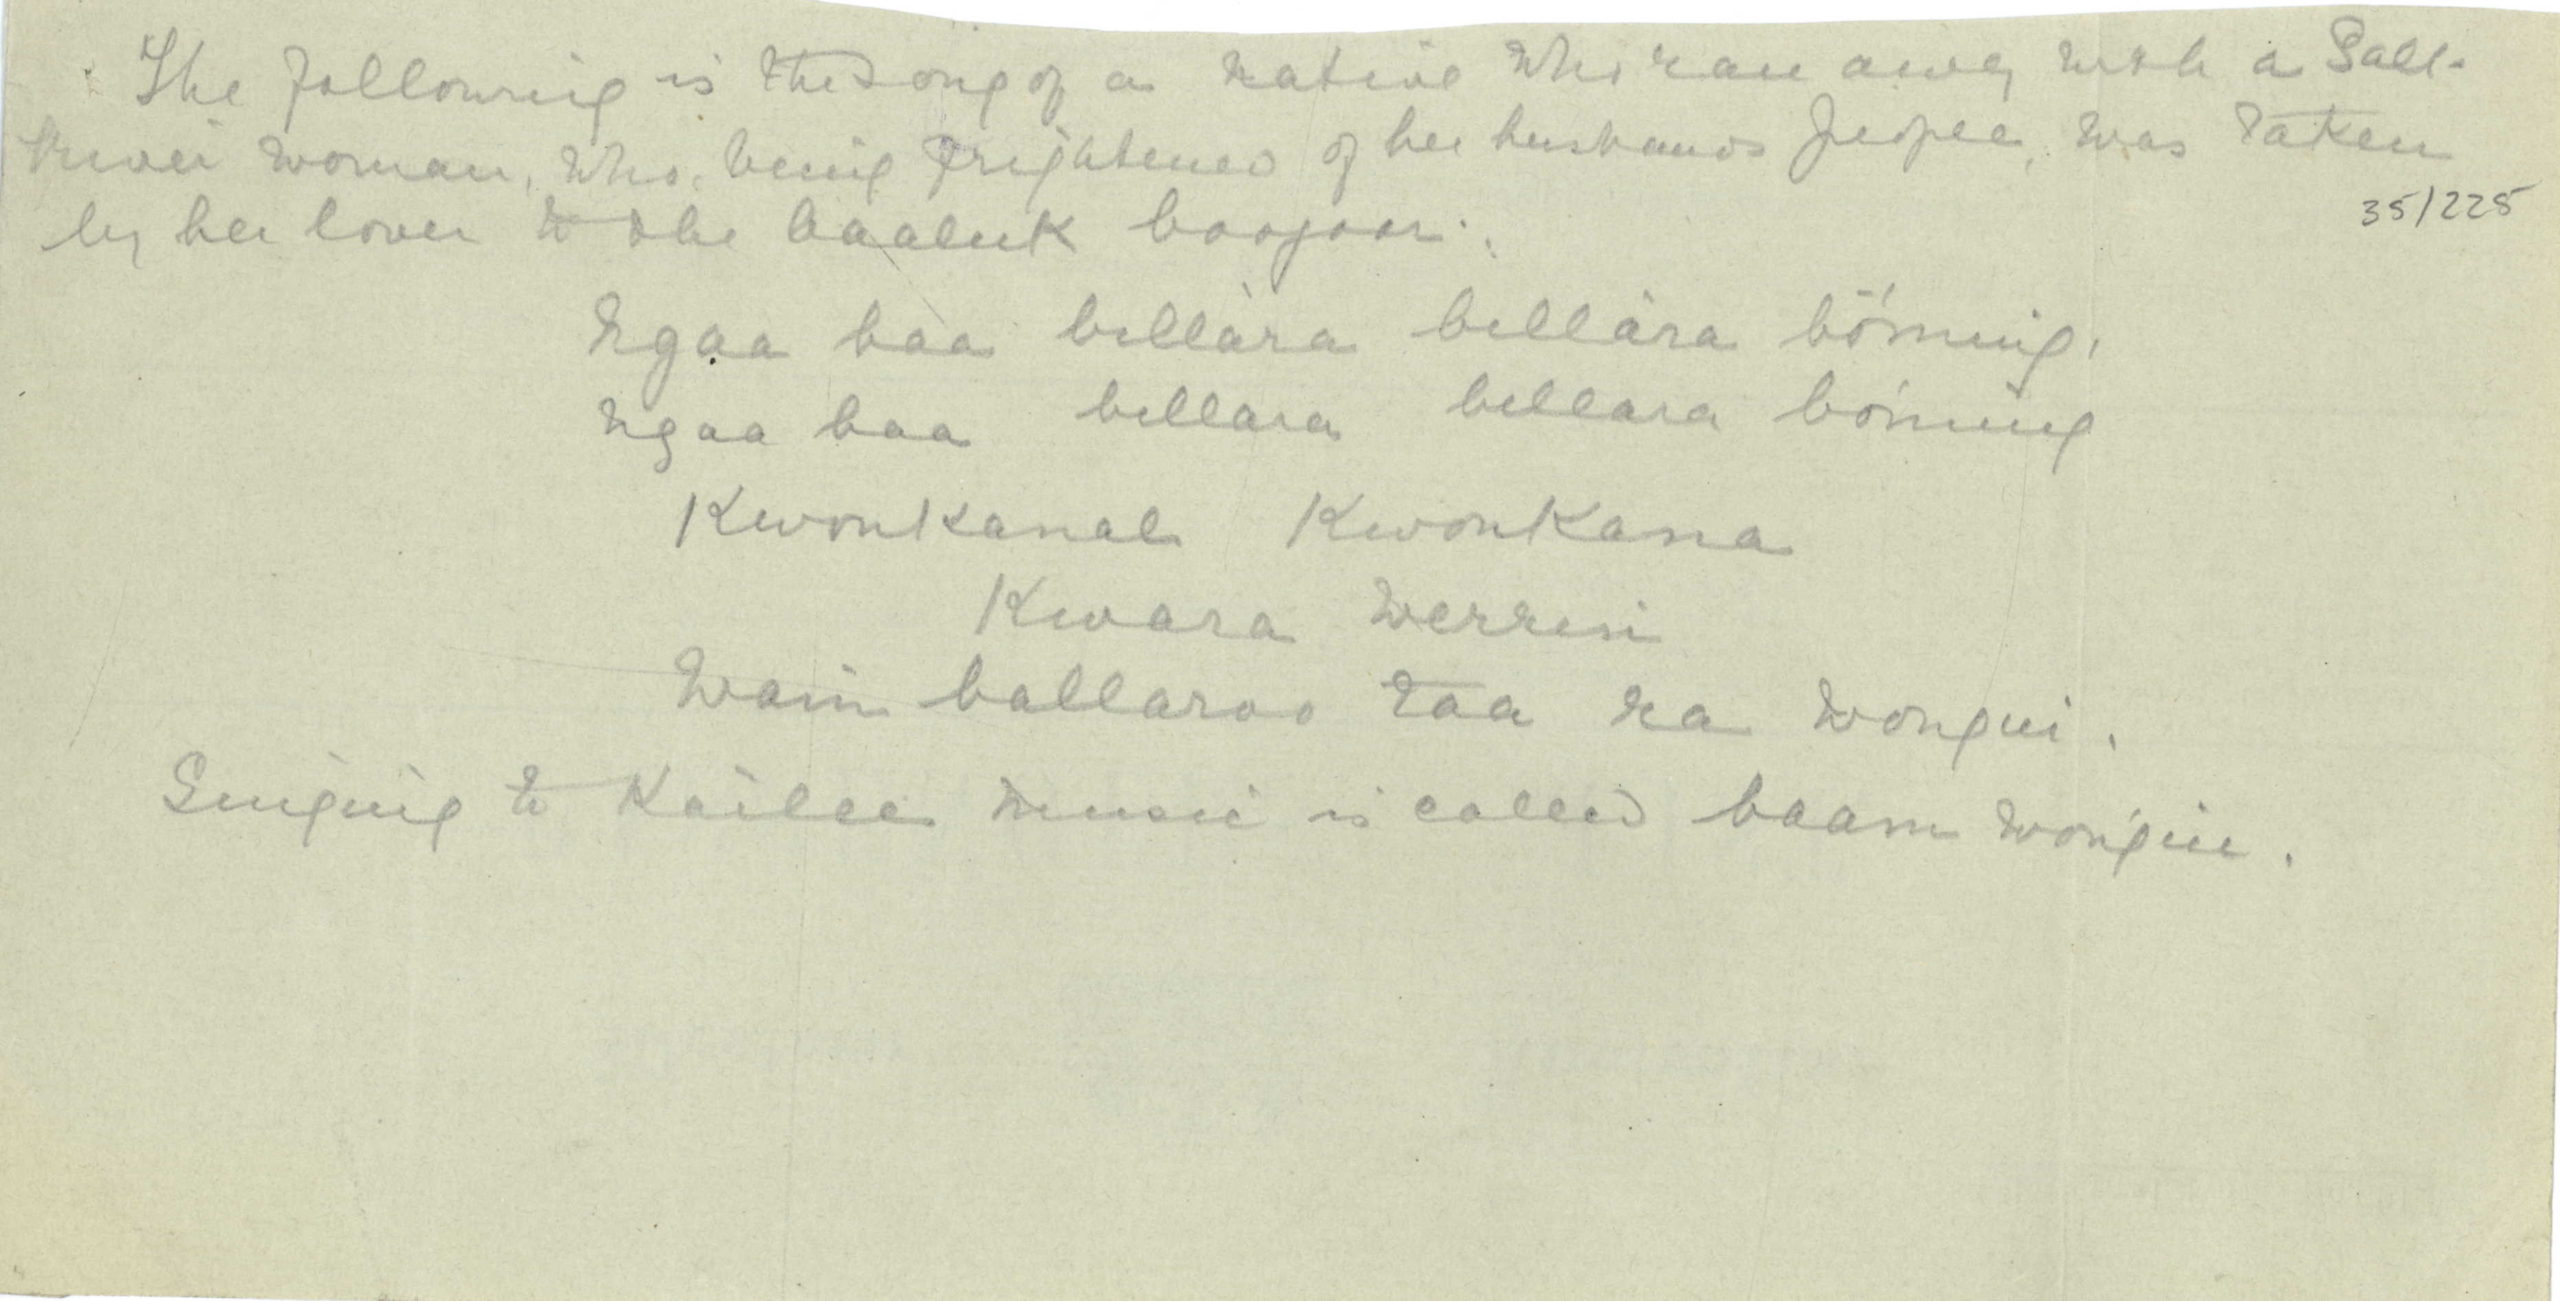 The following is the song of a native who ran away with a Sall-
River woman, who, being frightened of her husband's people, was taken
by her lover to the baaluk boojoor:.
35/225
Ngaa baa billàra billàra börning,
Ngaa baa billara billara bórning
Kwonkanal Kwonkana
Kwara werrin
Wain ballaroo taa na wongin.
Singing to Kailee music is called baam wongin.